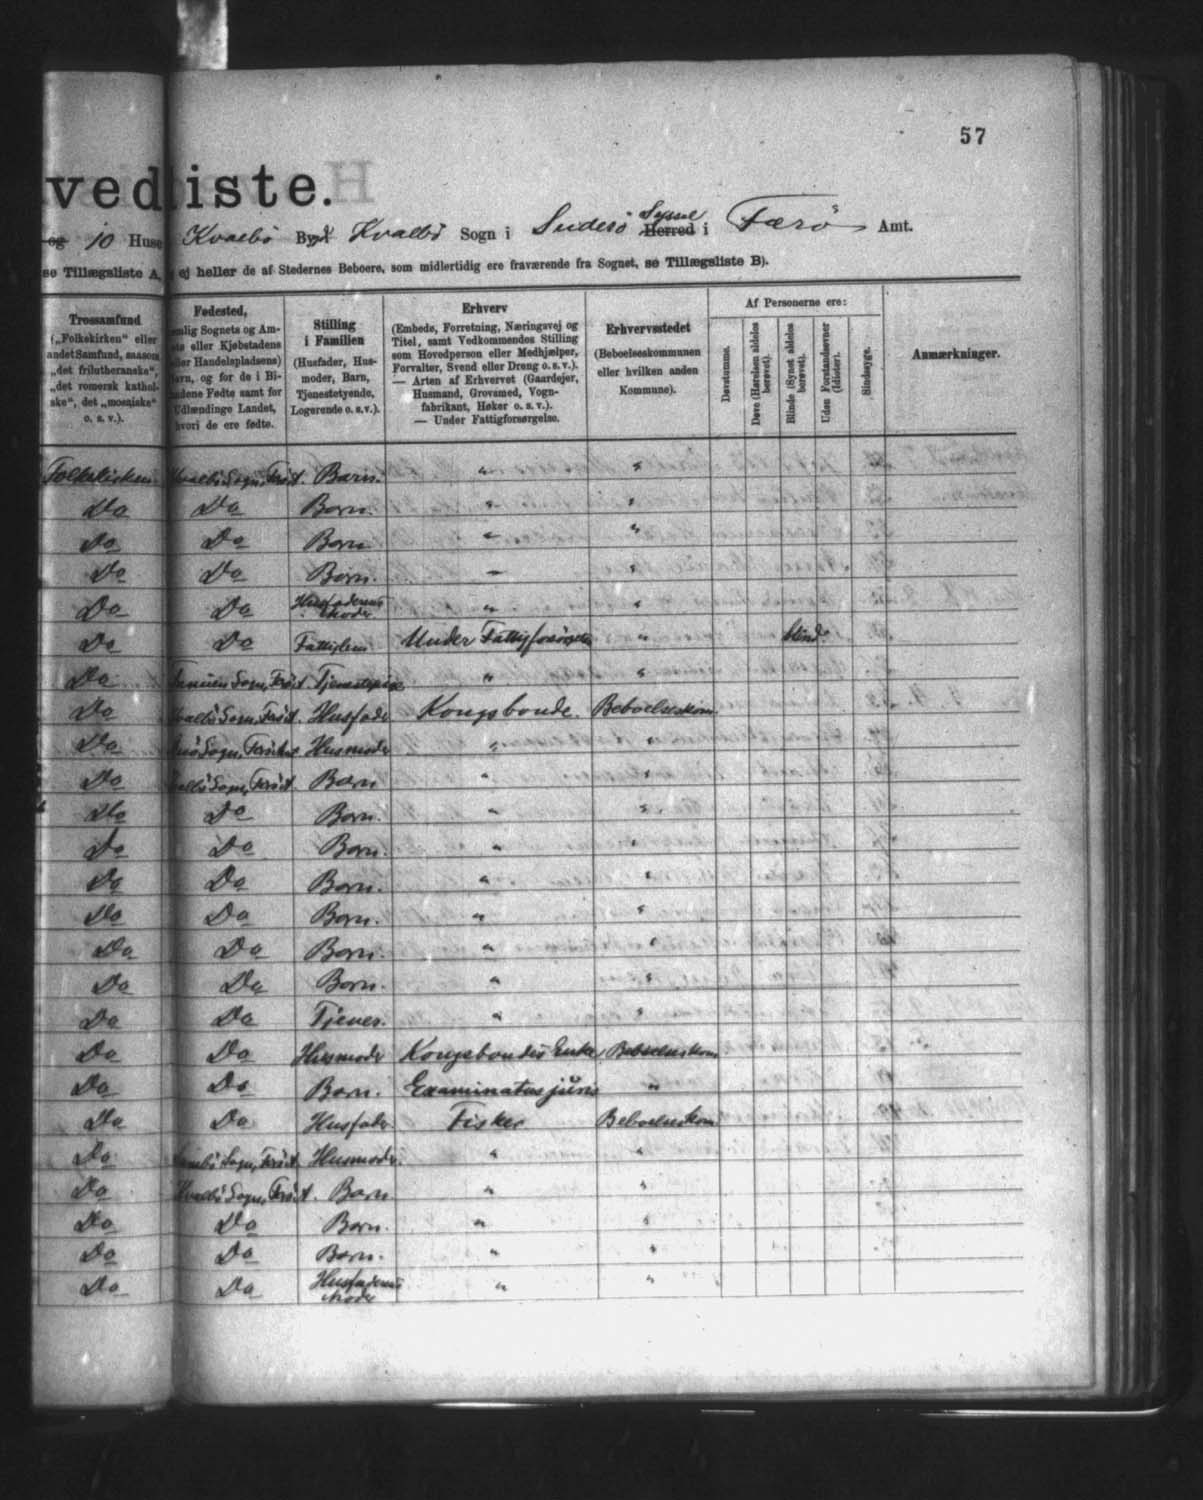 57
vedliste.
og 10 Huse Kvalbø Bygd Kvalbø Sogn i Suderø Syssel Herred i Færø Amt.
se Tillægsliste A, ej heller de af Stedernes Beboere, som midlertidig ere fraværende fra Sognet, se Tillægsliste B).
Trossamfund
(„Folkekirken“ eller
andet Samfund, saasom
„det frilutheranske“,
„det romersk kathol-
ske“, det „mosaiske“
o. s. v.).
Fødested,
nlig Sognets og Am-
ts eller Kjøbstadens
ller Handelspladsens)
avn, og for de i Bi-
ndene Fødte samt for
Udlændinge Landet,
hvori de ere fødte.
Stilling
i Familien
(Husfader, Hus-
moder, Barn,
Tjenestetyende,
Logerende o. s. v.).
Erhverv
(Embede, Forretning, Næringsvej og
Titel, samt Vedkommendes Stilling
som Hovedperson eller Medhjælper,
Forvalter, Svend eller Dreng o. s. v.).
— Arten af Erhvervet (Gaardejer,
Husmand, Grovsmed, Vogn-
fabrikant, Høker o. s. v.).
— Under Fattigforsørgelse.
Erhvervsstedet
(Beboelseskommunen
eller hvilken anden
Kommune).
Af Personerne ere:
Døvstumme.
Døve (Hørelsen aldeles berøvet).
Blinde (Synet aldeles berøvet).
Uden Forstandsevner (Idioter).
Sindssyge.
Anmærkninger.
Folkekirken Kvalbø Sogn, Færø A. Barn. " "
Do Do Barn. " "
Do Do Barn " "
Do Do Barn. " "
Do Do Husfaderens Moder " "
Do Do Fattiglem Under Fattigforsørgelse " blind
Do Sogn, Færø A Tjenestepige " "
Do Kvalbø Sogn, Færø A. Husfader Kongsbonde. Beboelseskom
Do Sogn, Færøerne Husmoder " "
Do Kvalbø Sogn, Færø A. Barn " "
Do Do Barn. " "
Do Do Barn. " "
Do Do Barn. " "
Do Do Barn. " "
Do Do Barn. " "
Do Do Barn. " "
Do Do Tjener. " "
Do Do Husmoder Kongsbondes Enke Beboelseskom
Do Do Barn. Examinatus juris "
Do Do Husfader Fisker Beboelseskom
Do Sogn, Færø A. Husmoder. " "
Do Kvalbø Sogn, Færø A. Barn " "
Do Do Barn. " "
Do Do Barn. " "
Do Do Husfaderens Moder " "